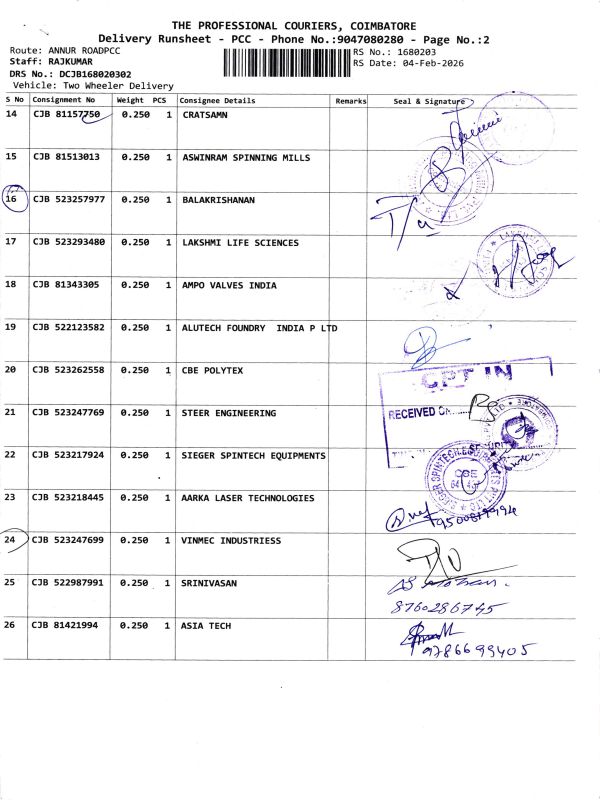 THE PROFESSIONAL COURIERS, COIMBATORE
Delivery Runsheet - PCC - Phone No.:9047080280 - Page No.:2
Route: ANNUR ROADPCC RS No.: 1680203
Staff: RAJKUMAR RS Date: 04-Feb-2026
DRS No.: DCJB168020302
Vehicle: Two Wheeler Delivery
S No Consignment No Weight PCS Consignee Details Remarks Seal & Signature
14 CJB 81157750 0.250 1 CRATSAMN
15 CJB 81513013 0.250 1 ASWINRAM SPINNING MILLS
16 CJB 523257977 0.250 1 BALAKRISHANAN
17 CJB 523293480 0.250 1 LAKSHMI LIFE SCIENCES
18 CJB 81343305 0.250 1 AMPO VALVES INDIA
19 CJB 522123582 0.250 1 ALUTECH FOUNDRY INDIA P LTD
20 CJB 523262558 0.250 1 CBE POLYTEX
RECEIVED ON
21 CJB 523247769 0.250 1 STEER ENGINEERING
22 CJB 523217924 0.250 1 SIEGER SPINTECH EQUIPMENTS
CBE
23 CJB 523218445 0.250 1 AARKA LASER TECHNOLOGIES
24 CJB 523247699 0.250 1 VINMEC INDUSTRIESS
25 CJB 522987991 0.250 1 SRINIVASAN
8760286745
26 CJB 81421994 0.250 1 ASIA TECH
9786699405